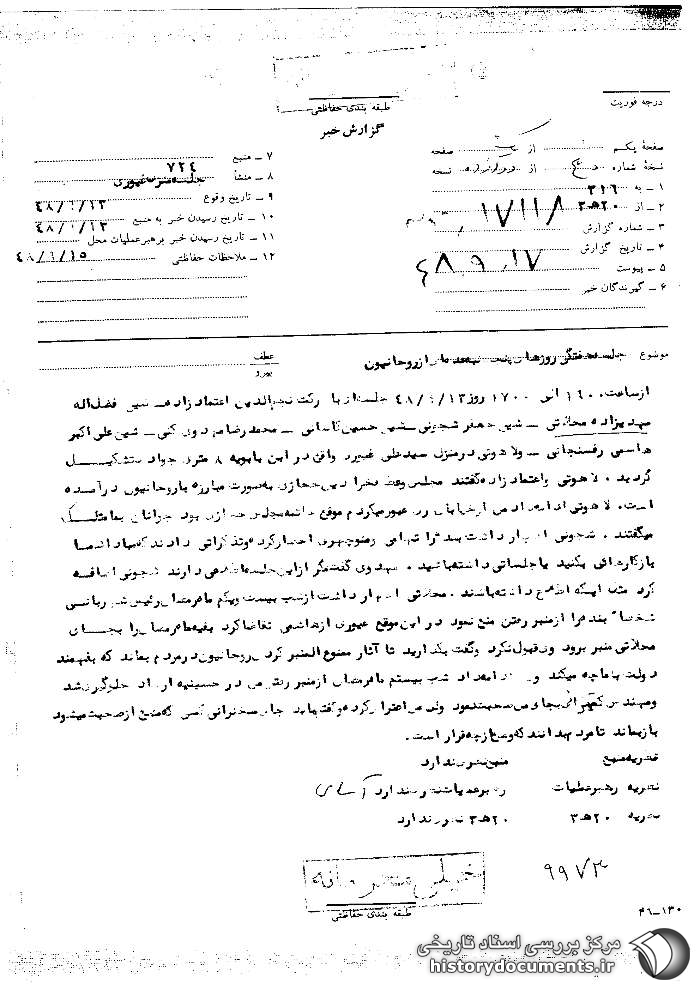 درجه فوریت
طبقه بندی حفاظتی
گزارش خبر
صفحهٔ یکم از صفحه
نسخهٔ شماره از نسخه
۱ ـ به ۳۱۶
۲ ـ از ۲۰هـ۳
۳ ـ شماره گزارش ۱۷۱۱۸
۴ ـ تاریخ گزارش ۴۸٫۹٫۱۷
۵ ـ پیوست
۶ ـ گیرندگان خبر
۷ ـ منبع ۷۲۴
۸ ـ منشأ جلسه غیوری
۹ ـ تاریخ وقوع
۱۰ ـ تاریخ رسیدن خبر به منبع
۱۱ ـ تاریخ رسیدن خبر برهبرعملیات محل
۱۲ ـ ملاحظات حفاظتی
موضوع جلسه هفتگی روزهای از روحانیون
عطف
پیرو
از ساعت ۱۶۰۰ الی ۱۷۰۰ روز جلسه‌ای با شرکت نجم‌الدین اعتمادزاده ـ شیخ فضل‌اله
مهدیزاده محلاتی ـ شیخ جعفر شجونی ـ شیخ حسین کاشانی ـ محمدرضا مهدوی کنی ـ شیخ علی اکبر
هاشمی رفسنجانی ـ ولاهوتی در منزل سیدعلی غیوری واقع در ابن بابویه ۸ متری جواد تشکیل
گردید . لاهوتی و اعتمادزاده گفتند مجلس وعظ فخرالدین حجازی بصورت مبارزه با روحانیون درآمده
است . لاهوتی من از خیابان عبور میکردم موقع جوانان بما متلک
میگفتند . شجونی اظهار داشت احضار کرده و تذکراتی دادند که مبادا شما
یا کارهائی بکنید یا جلساتی داشته باشید . مهدوی گفت مگر از این جلسه اطلاعی دارند شجونی اضافه
کرد مثل اینکه اطلاع داشته باشند . محلاتی اظهار داشت از شب بیست ویکم ماه رمضان رئیس شهربانی
شخصاً بنده را از منبر رفتن منع نمود در این موقع غیوری از هاشمی تقاضا کرد بقیه ماه رمضان را بجای
محلاتی منبر برود وی قبول نکرد و گفت بگذارید تا آثار ممنوع المنبر کردن روحانیون در مردم بماند که بفهمند
دولت با ما چه میکند شب بیستم ماه رمضان از منبر رفتن من در حسینیه ارشاد جلوگیری شد
بجای من صحبت نمود ولی من اعتراض کرده و گفتم باید جای سخنرانی کسی که منع از صحبت میشود
باز بماند تا مردم بدانند که وضع از چه قرار است .
نظریه منبع منبع نظری ندارد
نظریه رهبر عملیات رهبر عملیات نظری ندارد
نظریه ۲۰هـ۳ ۲۰هـ۳ نظری ندارد
خیلی محرمانه
طبقه بندی حفاظتی
۹۹۷۳
۴۶-۱۳۰
مرکز بررسی اسناد تاریخی
historydocuments.ir